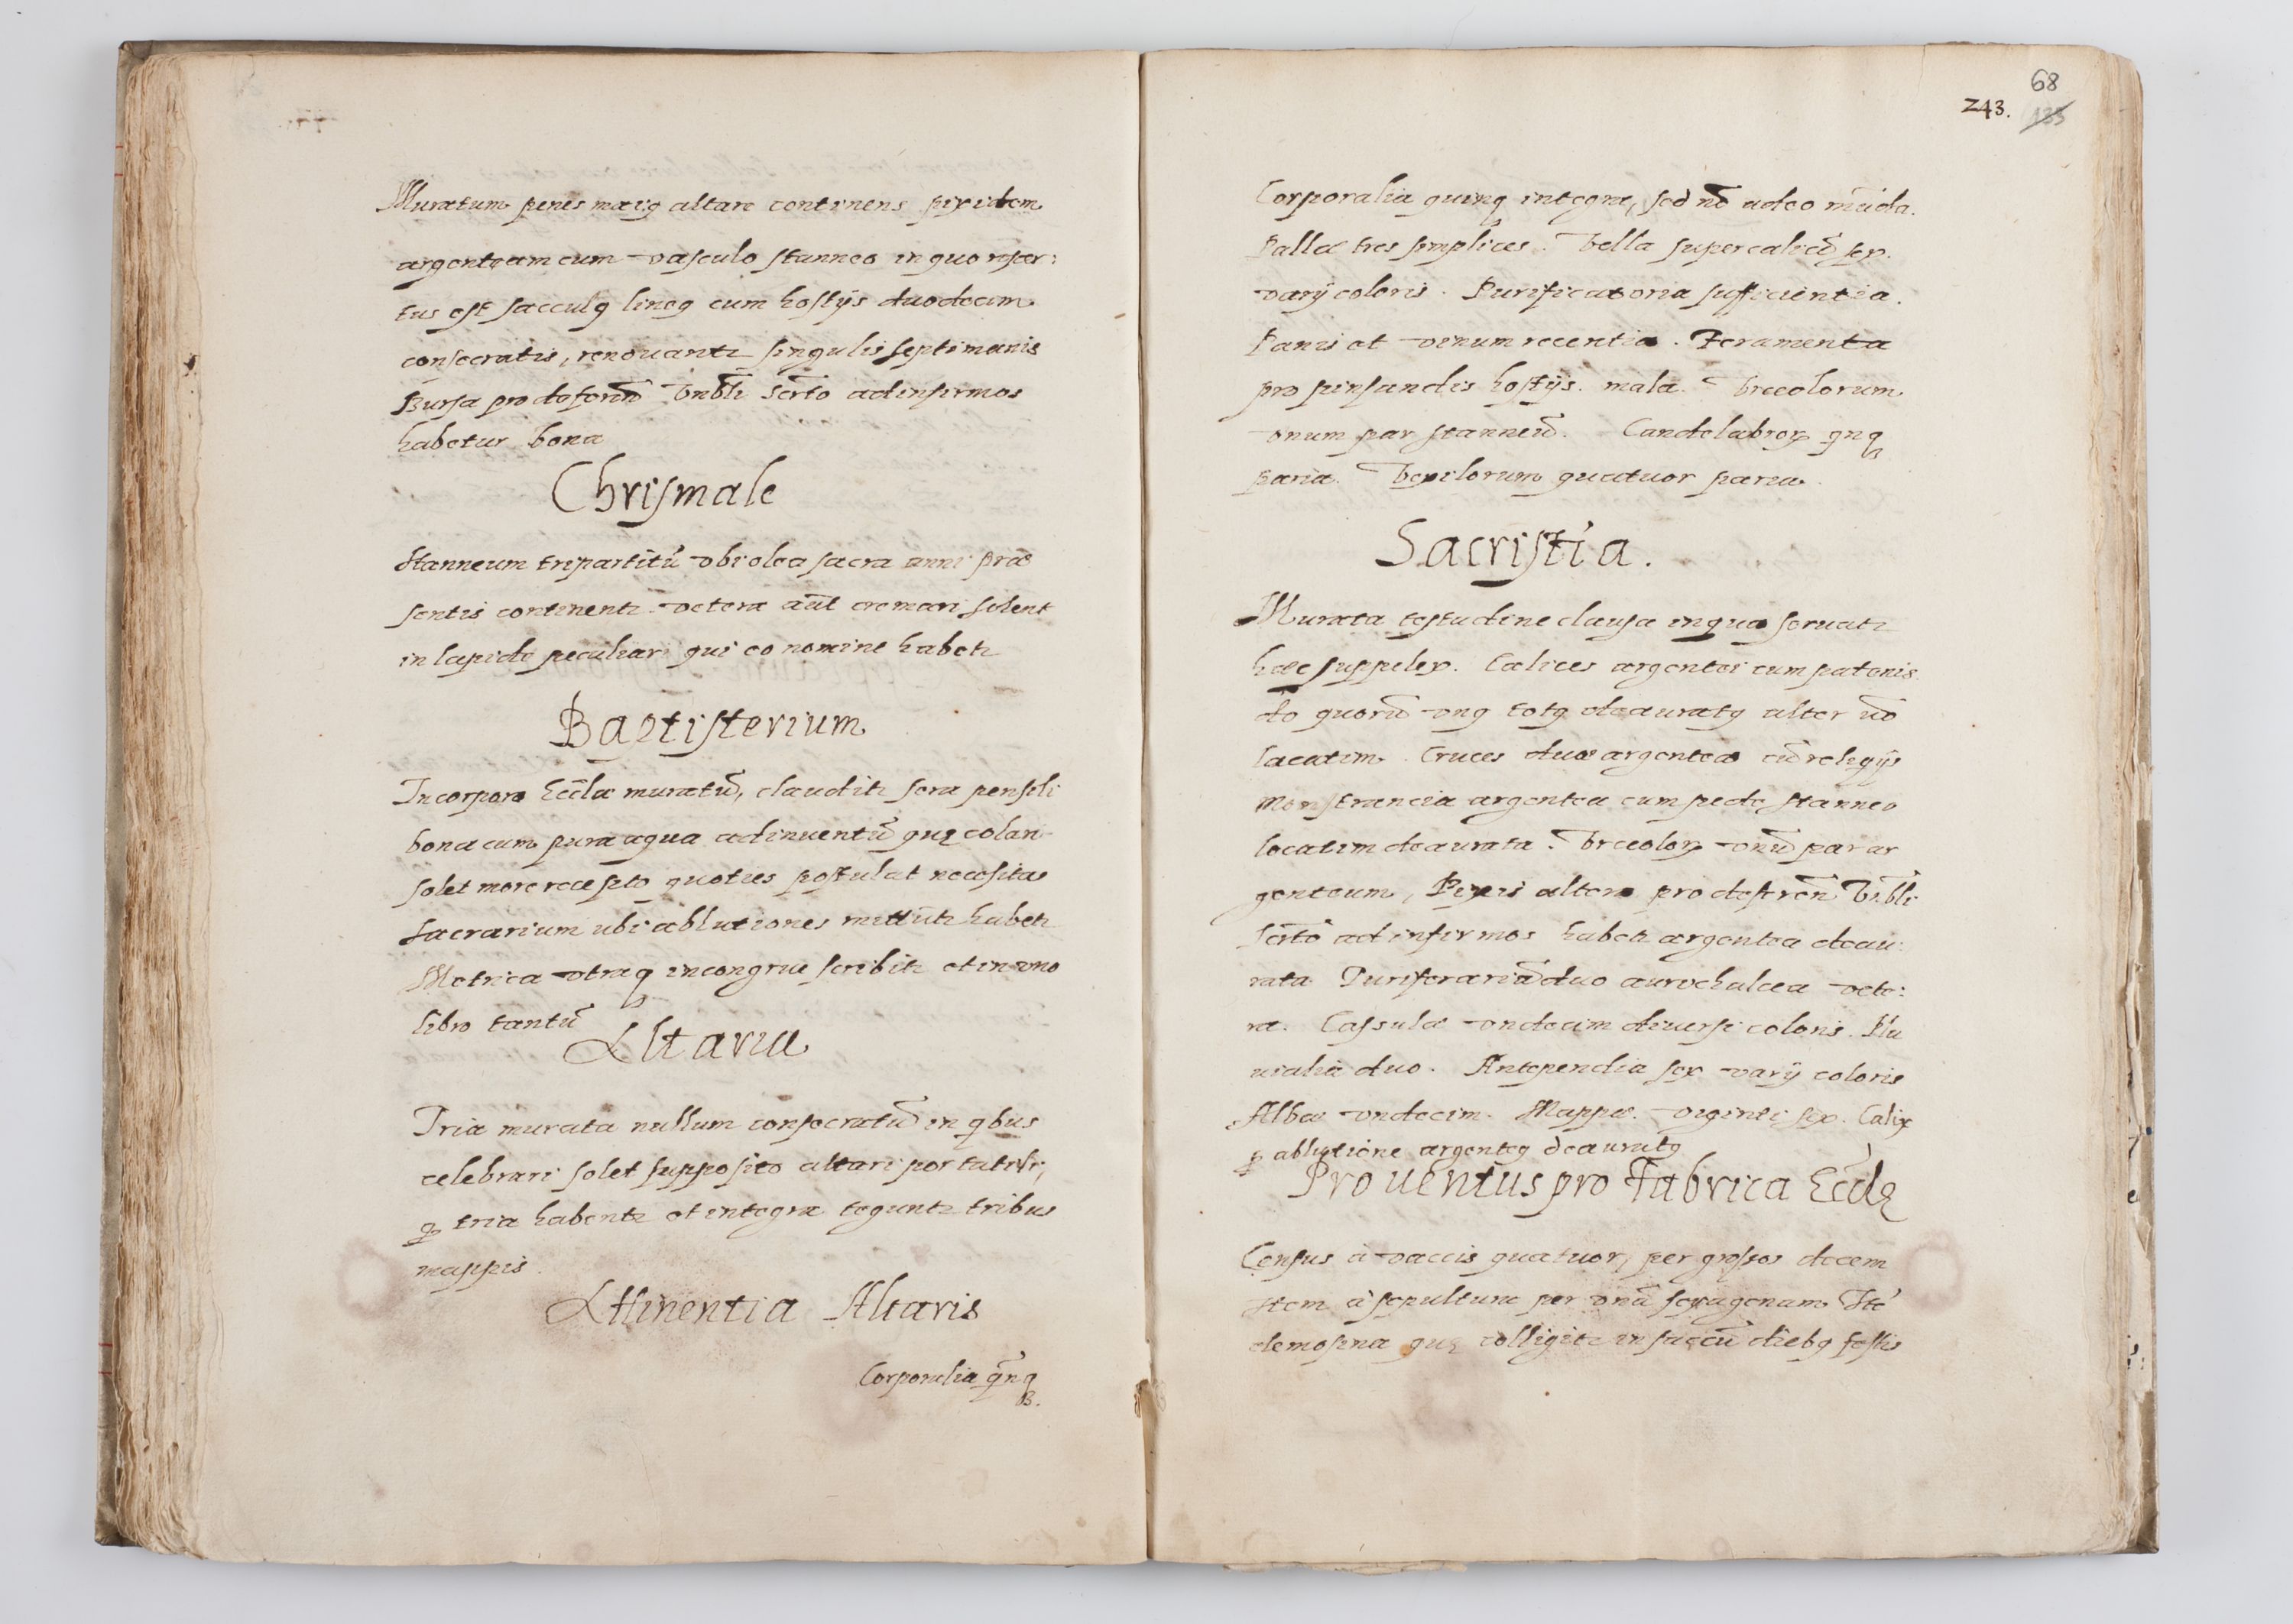 Muratum penes maig altare continens pixidem
argenteam cum vasculo stanneo in quo reser:
tus est sacculg lineg cum hostÿs duodecim
consecratis, renouantr singulis septimanis
Bursa pro deferen̄ Vn̄bli Scr̄to ad infirmos
habetur bona
Chrismale
Stanneum tripartitū vbi olea sacra anni præ
sentis continentr. vetera aūt cremari solent
in lapide peculiari qui eo nomine habetr
Baptisterium
In corpore Eccl̄æ muratū, clauditr sera pensili
bona cum pura aqua adinuentū quę colari
solet more recepto quoties postulat necesitas
Sacrarium ubi ablutiones mittūtr habetr
Metrica vtraq incongrue scribitr et in vno
libro tantū
Altaria
Tria murata nullum consecratū in qbus
celebrari solet supposito altari portatili,
q tria habentr et integra teguntr tribus
mappis.
Attinentia Altaris
Corporalia qīnq
B.
68
243. 135
Corporalia quinq integra, sed nō adeo mūda.
Pallæ tres simplices. Vella super calicū sex.
varÿ coloris. Purificatoria sufficientia.
Panis et vinum recentia. Feramenta
pro pinsandis hostÿs. mala. Vrceolorum
vnum par stanneū. Candelabror qnq
paria. Vexilorum quatuor paria.
Sacristia.
Murata testudine clausa in qua seruatr
hæc suppelex. Calices argentei cum patenis.
do quorū vng totg deauratg alter uō
lacatim. Cruces duæ argenteæ cū reliqÿs
Monstrancia argentea cum pede stanneo
locatim deaurata. Vrceolor vnū par ar
genteum, Pixis altera pro deferen̄ Vn̄bli
Scr̄to ad infirmos habetr argentea deau:
rata Turiferariā duo aurochalcea vete:
ra. Cassulæ vndecim diuersi coloris. Plu
uialia duo. Antependia sex varÿ coloris
Albæ vndecim. Mappæ. viginti sex. Calix
p ablutione argenteg deauratg
Prouentus pro Fabrica Eccl̄ę
Census à vaccis quatuor, per grossos decem
Item à sepultura per vnā sexagenam Itē
elemosina quę colligitr in saccū diebg festis